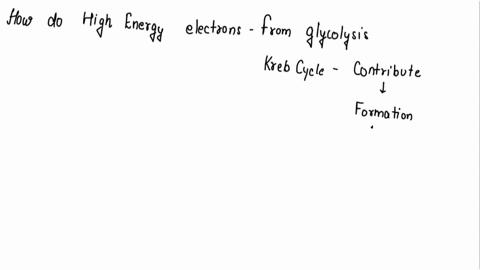 How do High Energy electrons - from glycolysis
Kreb Cycle - Contribute
↓
Formation